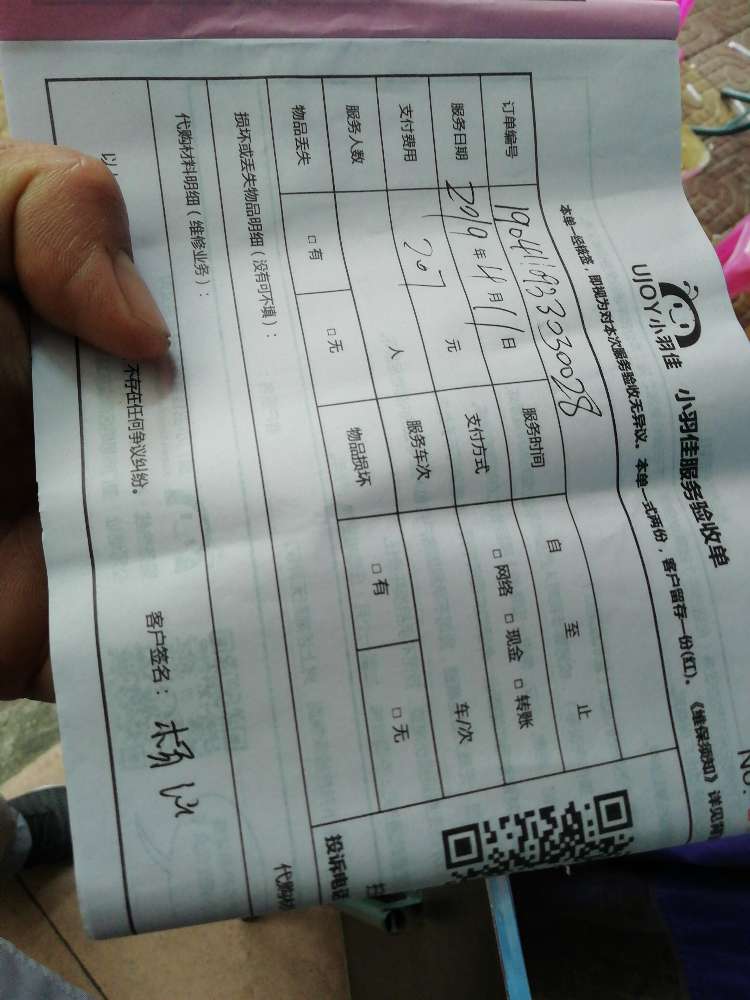 UJOY小羽佳 小羽佳服务验收单
No.
本单一经核签，即视为对本次服务验收无异议。本单一式两份，客户留存一份(红)。《维保须知》详见背
订单编号
服务时间 自 至 止
服务日期 2019年4月11日 支付方式 □网络 □现金 □转账
支付费用 207 元 服务车次 车/次
服务人数 人 物品损坏 □有 □无
物品丢失 □有 □无
投诉电话
损坏或丢失物品明细（没有可不填）：
代购材料明细（维修业务）：
代购材
不存在任何争议纠纷。
客户签名：